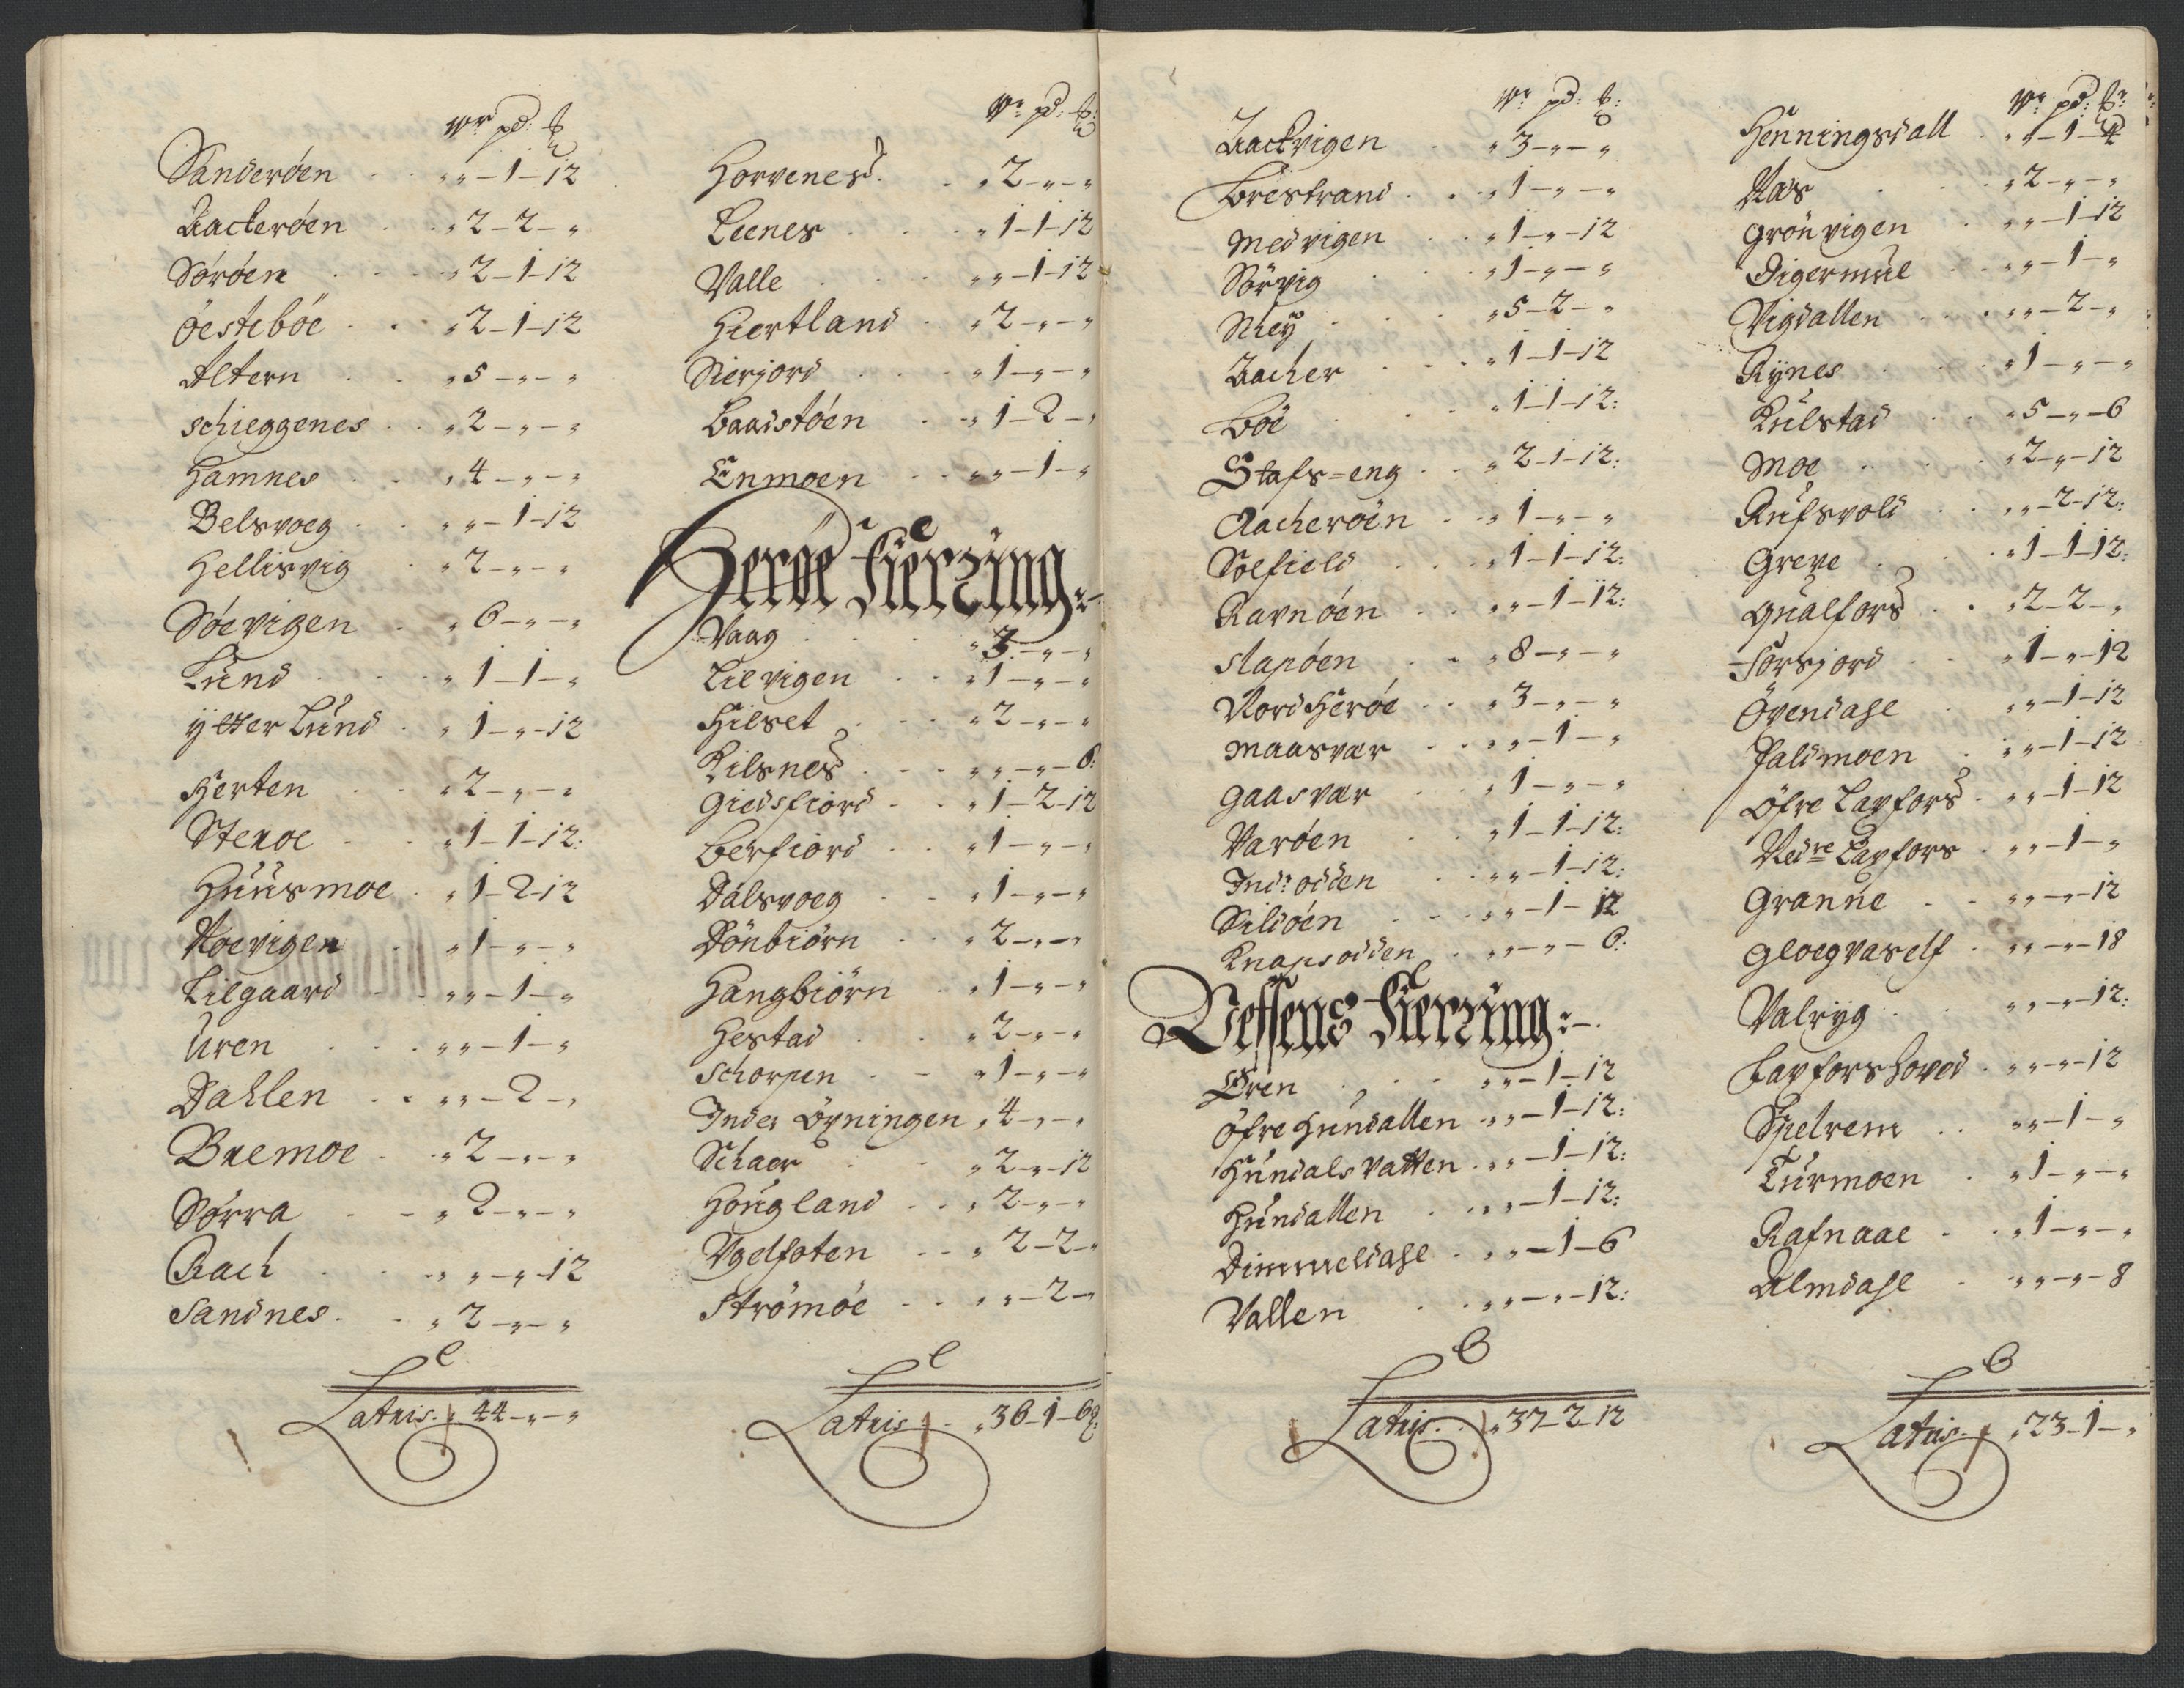 Wr pd: ℔
Sanderøen „ „ - 1 - 12
Aackerøen „ 2 - 2 - „
Sørøen „ 2 - 1 - 12
Øestebøe „ 2 - 1 - 12
Altern „ 5 - „ - „
Schieggenes „ 2 - „ - „
Hamnes „ 4 - „ - „
Belsvoeg „ „ - 1 - 12
Hellisvig „ 2 - „ - „
Søevigen „ 6 - „ - „
Lund „ 1 - 1 - „
ÿtter Lund „ 1 - „ - 12
Herten „ 2 - „ - „
Stenoe „ 1 - 1 - 12:
Huusmoe „ 1 - 2 - 12
Roevigen „ 1 - „ - „
Lilgaard „ „ - 1 - „
Uren „ „ - 1 - „
Dahlen „ „ - 2 - „
Bnemoe „ 2 - „ - „
Sørra „ 2 - „ - „
Rach „ „ - „ - 12
Sandnes „ 2 - „ - „
Latus „ 44 - „ - „
Wr pd: ℔:
Horvenes „ 2 - „ - „
Leenes „ 1 - 1 - 12
Valle „ „ - 1 - 12
Hiertland „ 2 - „ - „
Nierjord „ 1 - „ - „
Baadstøen „ 1 - 2 - „
Enmoen „ „ - 1 - „
Herøe Fierzing:
Vaag „ 3 - „ - „
Lilvigen „ 1 - „ - „
Hilset „ 2 - „ - „
Kilsnes „ „ - „ - 6:
Giedsfiord „ 1 - 2 - 12
Berfiord „ 1 - „ - „
Dalsvoeg „ 1 - „ - „
Dønbiørn „ 2 - „ - „
Hangbiørn „ 1 - „ - „
Hestad „ 2 - „ - „
Schorpen „ 1 - „ - „
Inder Øyningen „ 4 - „ - „
Schaer „ 2 - „ - 12
Hougland „ 2 - „ - „
Vgelfoten „ 2 - 2 - „
Strømøe „ „ - 2 - „
Latus „ 36 - 1 - 6
Wr pd: ℔:
Aackvigen „ 3 - „ - „
Brestrand „ 1 - „ - „
Medvigen „ 1 - „ - 12
Sørvig „ 1 - „ - „
Sney „ 5 - 2 - „
Aacher „ 1 - 1 - 12
Bøe „ 1 - 1 - 12:
Stafs=eng „ 2 - 1 - 12:
Aacherøen „ 1 - „ - „
Solfield „ 1 - 1 - 12:
Ravnøen „ „ - 1 - 12:
Slapøen „ 8 - „ - „
Nord Herøe „ 3 - „ - „
Maasvær „ „ - 1 - „
Gaasvær „ 1 - „ - „
Varøen „ 1 - 1 - 12:
Indr: odden „ „ - 1 - 12:
Sildøen „ „ - 1 - 12
Knapsodden „ „ - „ - 6:
Nessens Fierzing:
Øren „ „ - 1 - 12
Øfre Hundallen „ „ - 1 - 12:
Hundals Vatten „ „ - 1 - 12:
Hundallen „ „ - 1 - 12:
Dimmeldahl „ „ - 1 - 6
Vallen „ „ - „ - 12:
Latus „ 37 - 2 - 12
Wr pd: ℔:
Henningsdall „ „ - 1 - 4
Næs „ 2 - „ - „
Grønvigen „ „ - 1 - 12
Digermul „ „ - 1 - „
Vigdallen „ „ - 2 - „
Rÿnes „ 1 - „ - „
Kulstad „ 5 - „ - 6
Moe „ 2 - „ - 12
Rufsvold „ „ - 2 - 12:
Greve „ 1 - 1 - 12:
Qualfors „ 2 - 2 - „
Forsjord „ 1 - „ - 12
Øvendahl „ „ - 1 - 12
Faldmoen „ „ - 1 - 12
Øfre Laxfors „ „ - 1 - 12
Nedre Laxfors „ „ - 1 - „
Granne „ „ - „ - 12
Gloegvaself „ „ - „ - 18
Valryg „ „ - „ - 12:
Laxforshoved „ „ - „ - 12
Spelrem „ „ - 1 - „
Turmoen „ 1 - „ - „
Rafnaae „ 1 - „ - „
Almdahl „ „ - „ - 8
Latus „ 23 - 1 - „